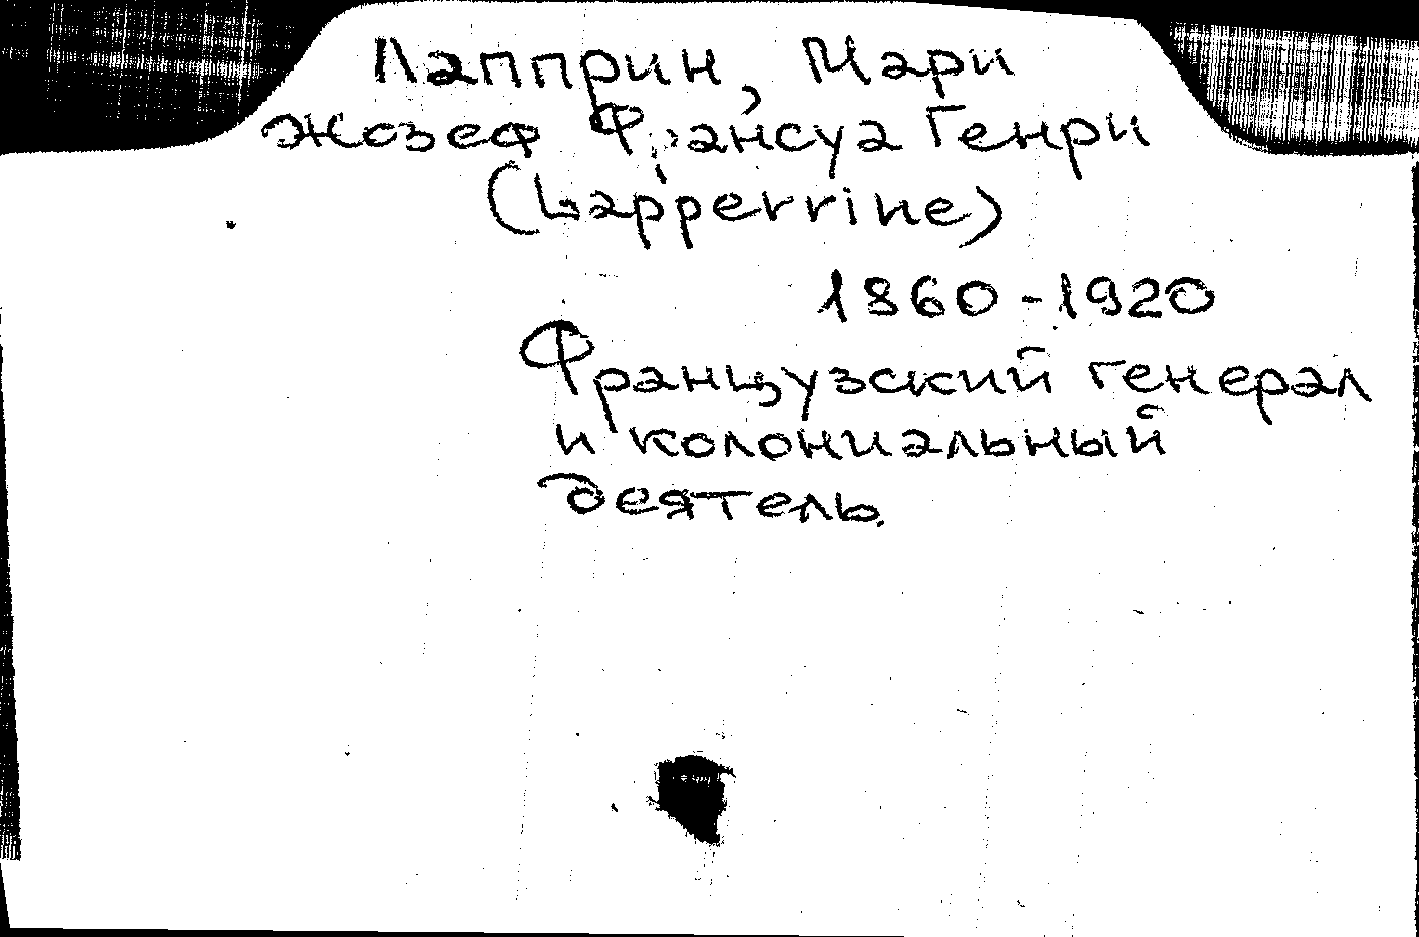 Лапприн, Мари
Жозеф Франсуа Генри
(Lapperrine)
1860-1920
Французский генерал
и колониальный
деятель.